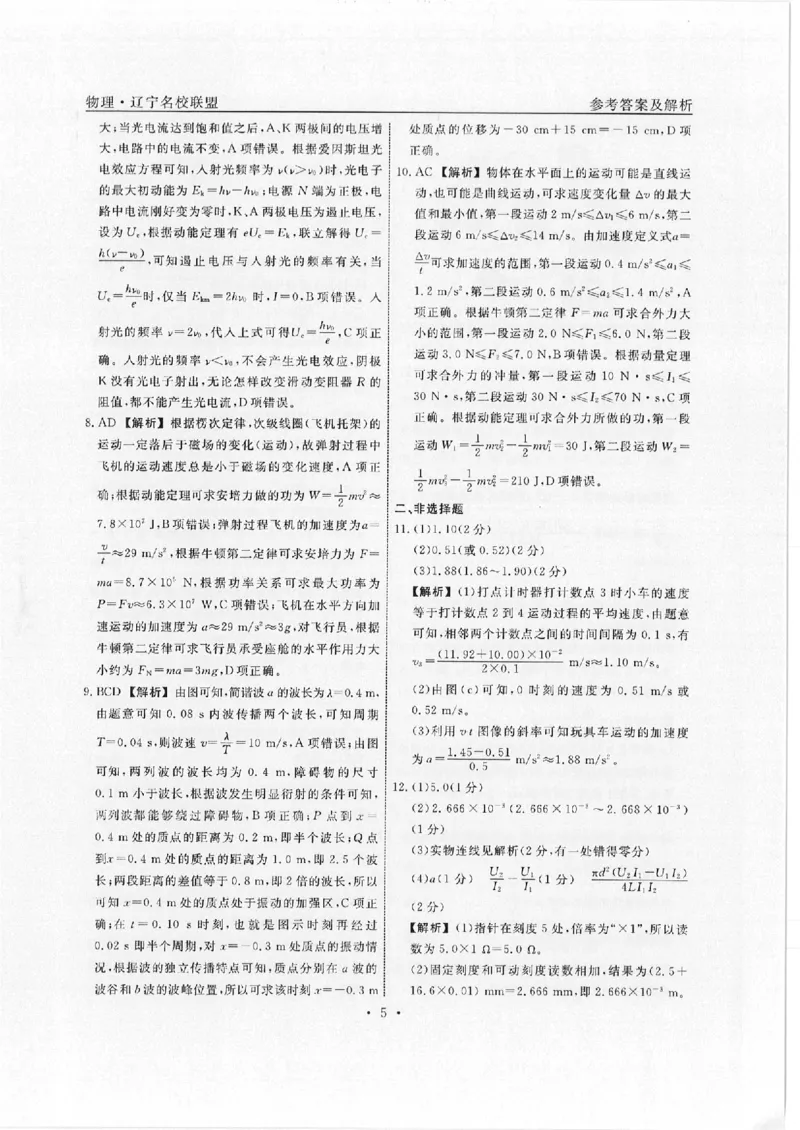 物理·辽宁名校联盟
参考答案及解析
大;当光电流达到饱和值之后,A、K两极间的电压增
大,电路中的电流不变,A项错误。根据爱因斯坦光
电效应方程可知,入射光频率为ν(ν>ν₀)时,光电子
的最大初动能为Eₖ=hν-hν₀;电源N端为正极,电
路中电流刚好变为零时,K、A两极电压为遏止电压,
设为U꜀,根据动能定理有eU꜀=Eₖ,联立解得U꜀=
h(ν-ν₀)/e,可知遏止电压与入射光的频率有关,当
U꜀=hν₀/e时,仅当Eₖₘ=2hν₀时,I=0,B项错误。入
射光的频率ν=2ν₀,代入上式可得U꜀=hν₀/e,C项正
确。入射光的频率ν<ν₀,不会产生光电效应,阴极
K没有光电子射出,无论怎样改变滑动变阻器R的
阻值,都不能产生光电流,D项错误。
8.AD 【解析】根据楞次定律,次级线圈(飞机托架)的
运动一定落后于磁场的变化(运动),故弹射过程中
飞机的运动速度总是小于磁场的变化速度,A项正
确;根据动能定理可求安培力做的功为W=1/2mv²≈
7.8×10⁷ J,B项错误;弹射过程飞机的加速度为a=
v/t≈29 m/s²,根据牛顿第二定律可求安培力为F=
ma=8.7×10⁵ N,根据功率关系可求最大功率为
P=Fv≈6.3×10⁷ W,C项错误;飞机在水平方向加
速运动的加速度为a≈29 m/s²≈3g,对飞行员,根据
牛顿第二定律可求飞行员承受座舱的水平作用力大
小约为F_N=ma=3mg,D项正确。
9.BCD 【解析】由图可知,简谐波a的波长为λ=0.4 m,
由题意可知0.08 s内波传播两个波长,可知周期
T=0.04 s,则波速v=λ/T=10 m/s,A项错误;由图
可知,两列波的波长均为0.4 m,障碍物的尺寸
0.1 m小于波长,根据波发生明显衍射的条件可知,
两列波都能够绕过障碍物,B项正确;P点到x=
0.4 m处的质点的距离为0.2 m,即半个波长;Q点
到x=0.4 m处的质点的距离为1.0 m,即2.5个波
长;两段距离的差值等于0.8 m,即2倍的波长,所以
可知x=0.4 m处的质点处于振动的加强区,C项正
确;在t=0.10 s时刻,也就是图示时刻再经过
0.02 s即半个周期,对x=-0.3 m处质点的振动情
况,根据波的独立传播特点可知,质点分别在a波的
波谷和b波的波峰位置,所以可求该时刻x=-0.3 m
处质点的位移为-30 cm+15 cm=-15 cm,D项
正确。
10.AC 【解析】物体在水平面上的运动可能是直线运
动,也可能是曲线运动,可求速度变化量Δv的最大
值和最小值,第一段运动2 m/s≤Δv₁≤6 m/s,第二
段运动6 m/s≤Δv₂≤14 m/s。由加速度定义式a=
Δv/t可求加速度的范围,第一段运动0.4 m/s²≤a₁≤
1.2 m/s²,第二段运动0.6 m/s²≤a₂≤1.4 m/s²,A
项正确。根据牛顿第二定律F=ma可求合外力大
小的范围,第一段运动2.0 N≤F₁≤6.0 N,第二段
运动3.0 N≤F₂≤7.0 N,B项错误。根据动量定理
可求合外力的冲量,第一段运动10 N·s≤I₁≤
30 N·s,第二段运动30 N·s≤I₂≤70 N·s,C项
正确。根据动能定理可求合外力所做的功,第一段
运动W₁=1/2mv₂²-1/2mv₁²=30 J,第二段运动W₂=
1/2mv₃²-1/2mv₂²=210 J,D项错误。
二、非选择题
11.(1)1.10(2分)
(2)0.51(或0.52)(2分)
(3)1.88(1.86~1.90)(2分)
【解析】(1)打点计时器打计数点3时小车的速度
等于打计数点2到4运动过程的平均速度,由题意
可知,相邻两个计数点之间的时间间隔为0.1 s,有
v₃=(11.92+10.00)×10⁻²/2×0.1 m/s≈1.10 m/s。
(2)由图(c)可知,0时刻的速度为0.51 m/s或
0.52 m/s。
(3)利用v t图像的斜率可知玩具车运动的加速度
为a=1.45-0.51/0.5 m/s²≈1.88 m/s²。
12.(1)5.0(1分)
(2)2.666×10⁻³(2.666×10⁻³~2.668×10⁻³)
(1分)
(3)实物连线见解析(2分,有一处错得零分)
(4)a(1分) U₂/I₂-U₁/I₁(1分) πd²(U₂I₁-U₁I₂)/4LI₁I₂
(2分)
【解析】(1)指针在刻度5处,倍率为“×1”,所以读
数为5.0×1 Ω=5.0 Ω。
(2)固定刻度和可动刻度读数相加,结果为(2.5+
16.6×0.01) mm=2.666 mm,即2.666×10⁻³ m。
·5·